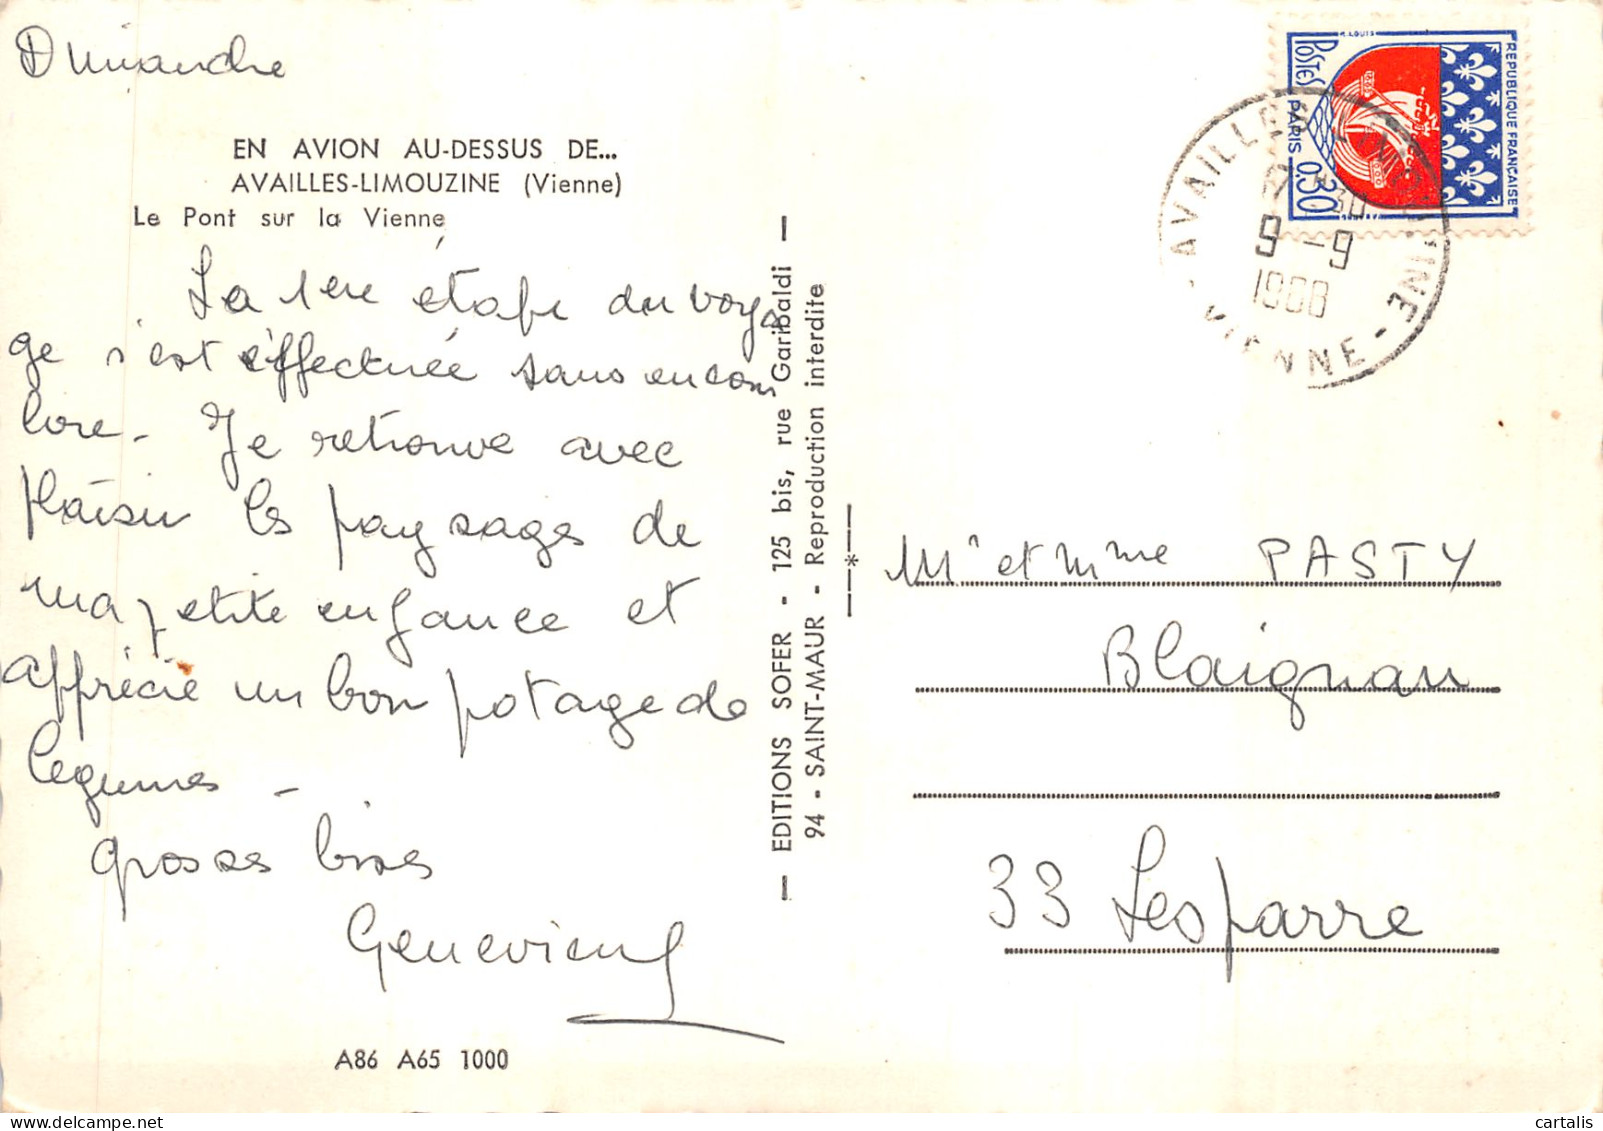 Dimanche
EN AVION AU-DESSUS DE...
AVAILLES-LIMOUZINE (Vienne)
Le Pont sur la Vienne
La 1ere étape du voya
ge s'est effectuée sans encom
bre. Je retrouve avec
plaisir les paysages de
ma petite enfance et
apprécie un bon potage de
légumes -
grosses bises
Geneviève
A86 A65 1000
EDITIONS SOFER - 125 bis, rue Garibaldi
94 - SAINT-MAUR - Reproduction interdite
REPUBLIQUE FRANÇAISE
POSTES
PARIS 0,30
AVAILLES-LIMOUZINE
9-9
1968
- VIENNE -
Mr et Mme PASTY
Blaignan
33 Lesparre
cartalis